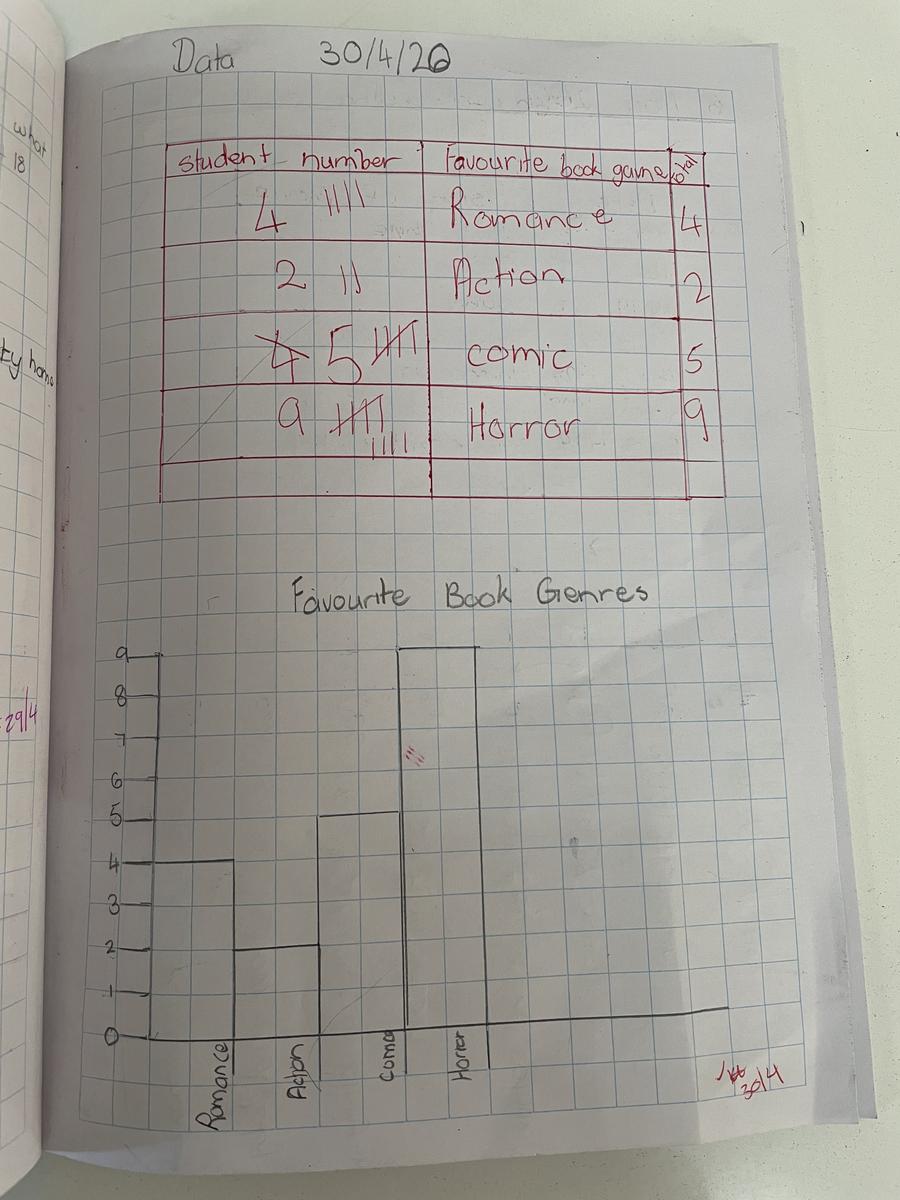 Data 30/4/26
what
18
ty home
29/4
student number Favourite book gavne total
4 |||| Romance 4
2 || Action 2
4 5 comic 5
9 |||| Horror 9
Favourite Book Genres
9
8
7
6
5
4
3
2
1
0
Romance
Action
Comic
Horror
30/4